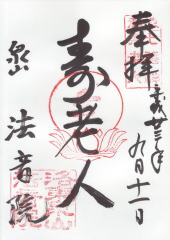 奉拝
平成廿三年
九月十一日
寿老人
泉山
法音院